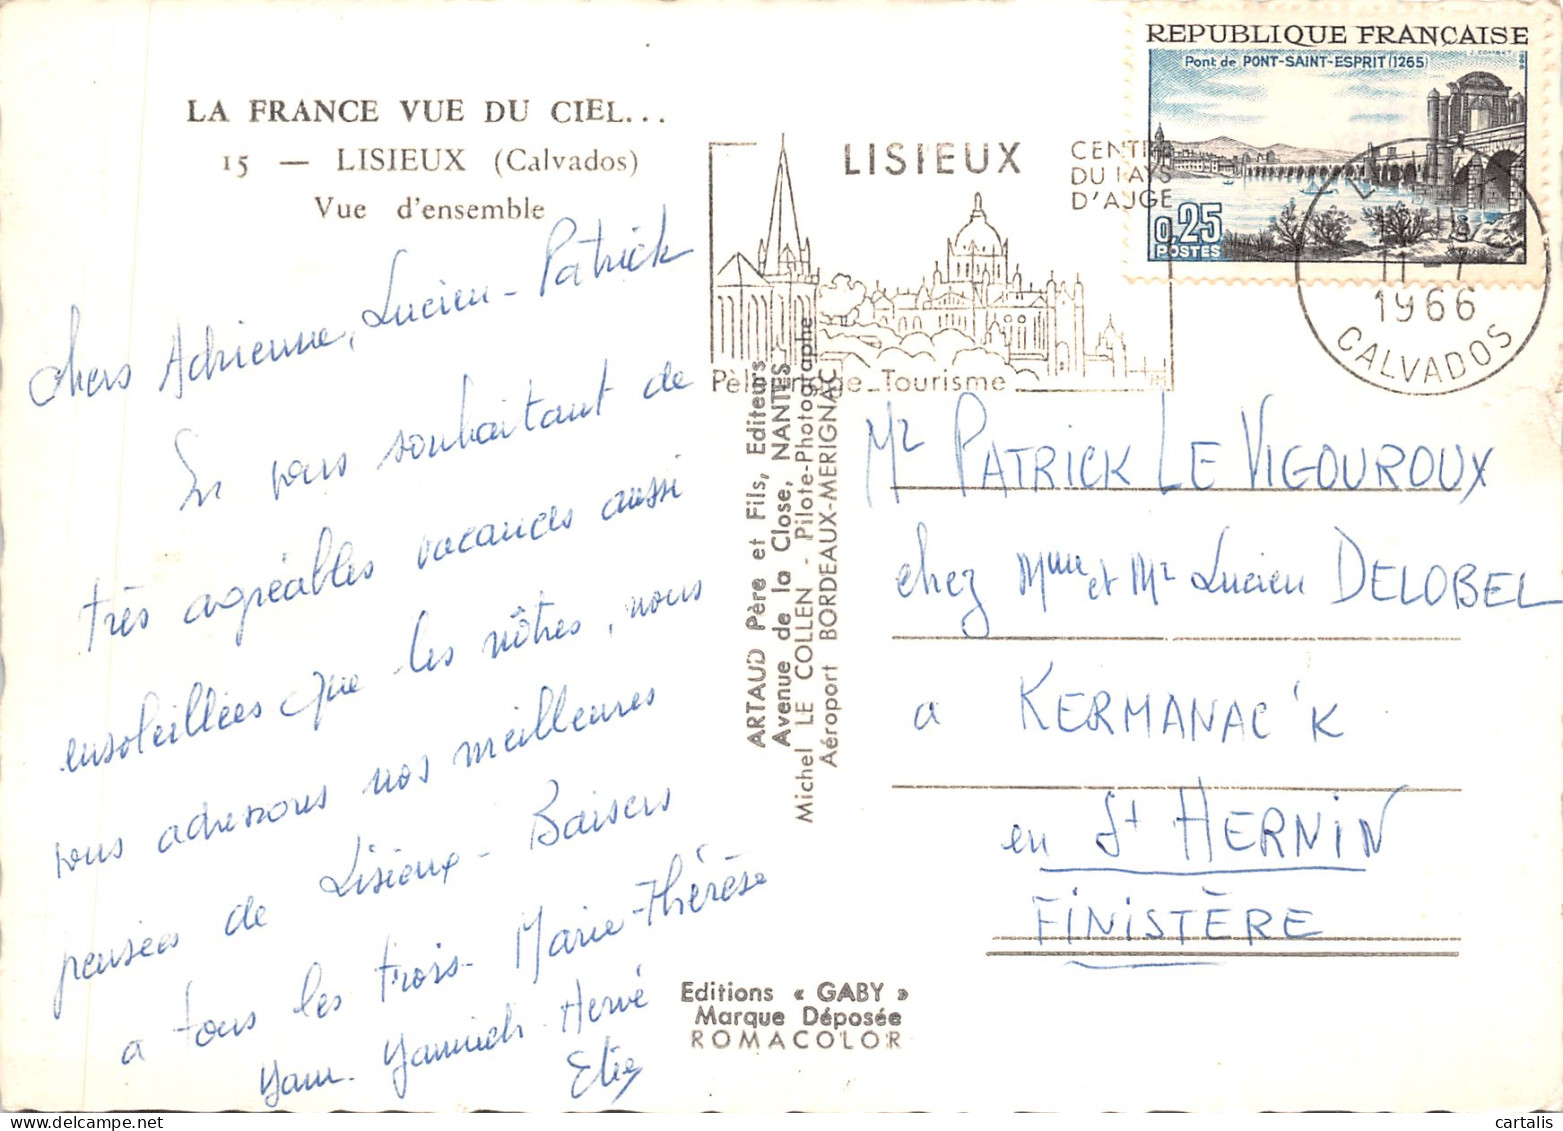 LA FRANCE VUE DU CIEL...
15 — LISIEUX (Calvados)
Vue d'ensemble
chers Adrienne, Lucien - Patrick
En vous souhaitant de
très agréables vacances aussi
ensoleillées que les nôtres, nous
vous adressons nos meilleures
pensées de Lisieux - Baisers
a tous les trois - Marie-Thérèse
Yann - Yannick - Hervé
ARTAUD Père et Fils, Editeurs
Avenue de la Close, NANTES
Michel LE COLLEN - Pilote-Photographe
Aéroport BORDEAUX-MERIGNAC
Editions « GABY »
Marque Déposée
ROMACOLOR
LISIEUX
CENTRE
DU PAYS
D'AUGE
Pèlerinage_Tourisme
REPUBLIQUE FRANÇAISE
J. COMBET
Pont de PONT-SAINT-ESPRIT (1265)
0,25
POSTES
11 - 7
1966
CALVADOS
Mr PATRICK LE VIGOUROUX
chez Mme et Mr Lucien DELOBEL
a KERMANAC'K
en St HERNIN
FINISTÈRE
cartalis
www.delcampe.net